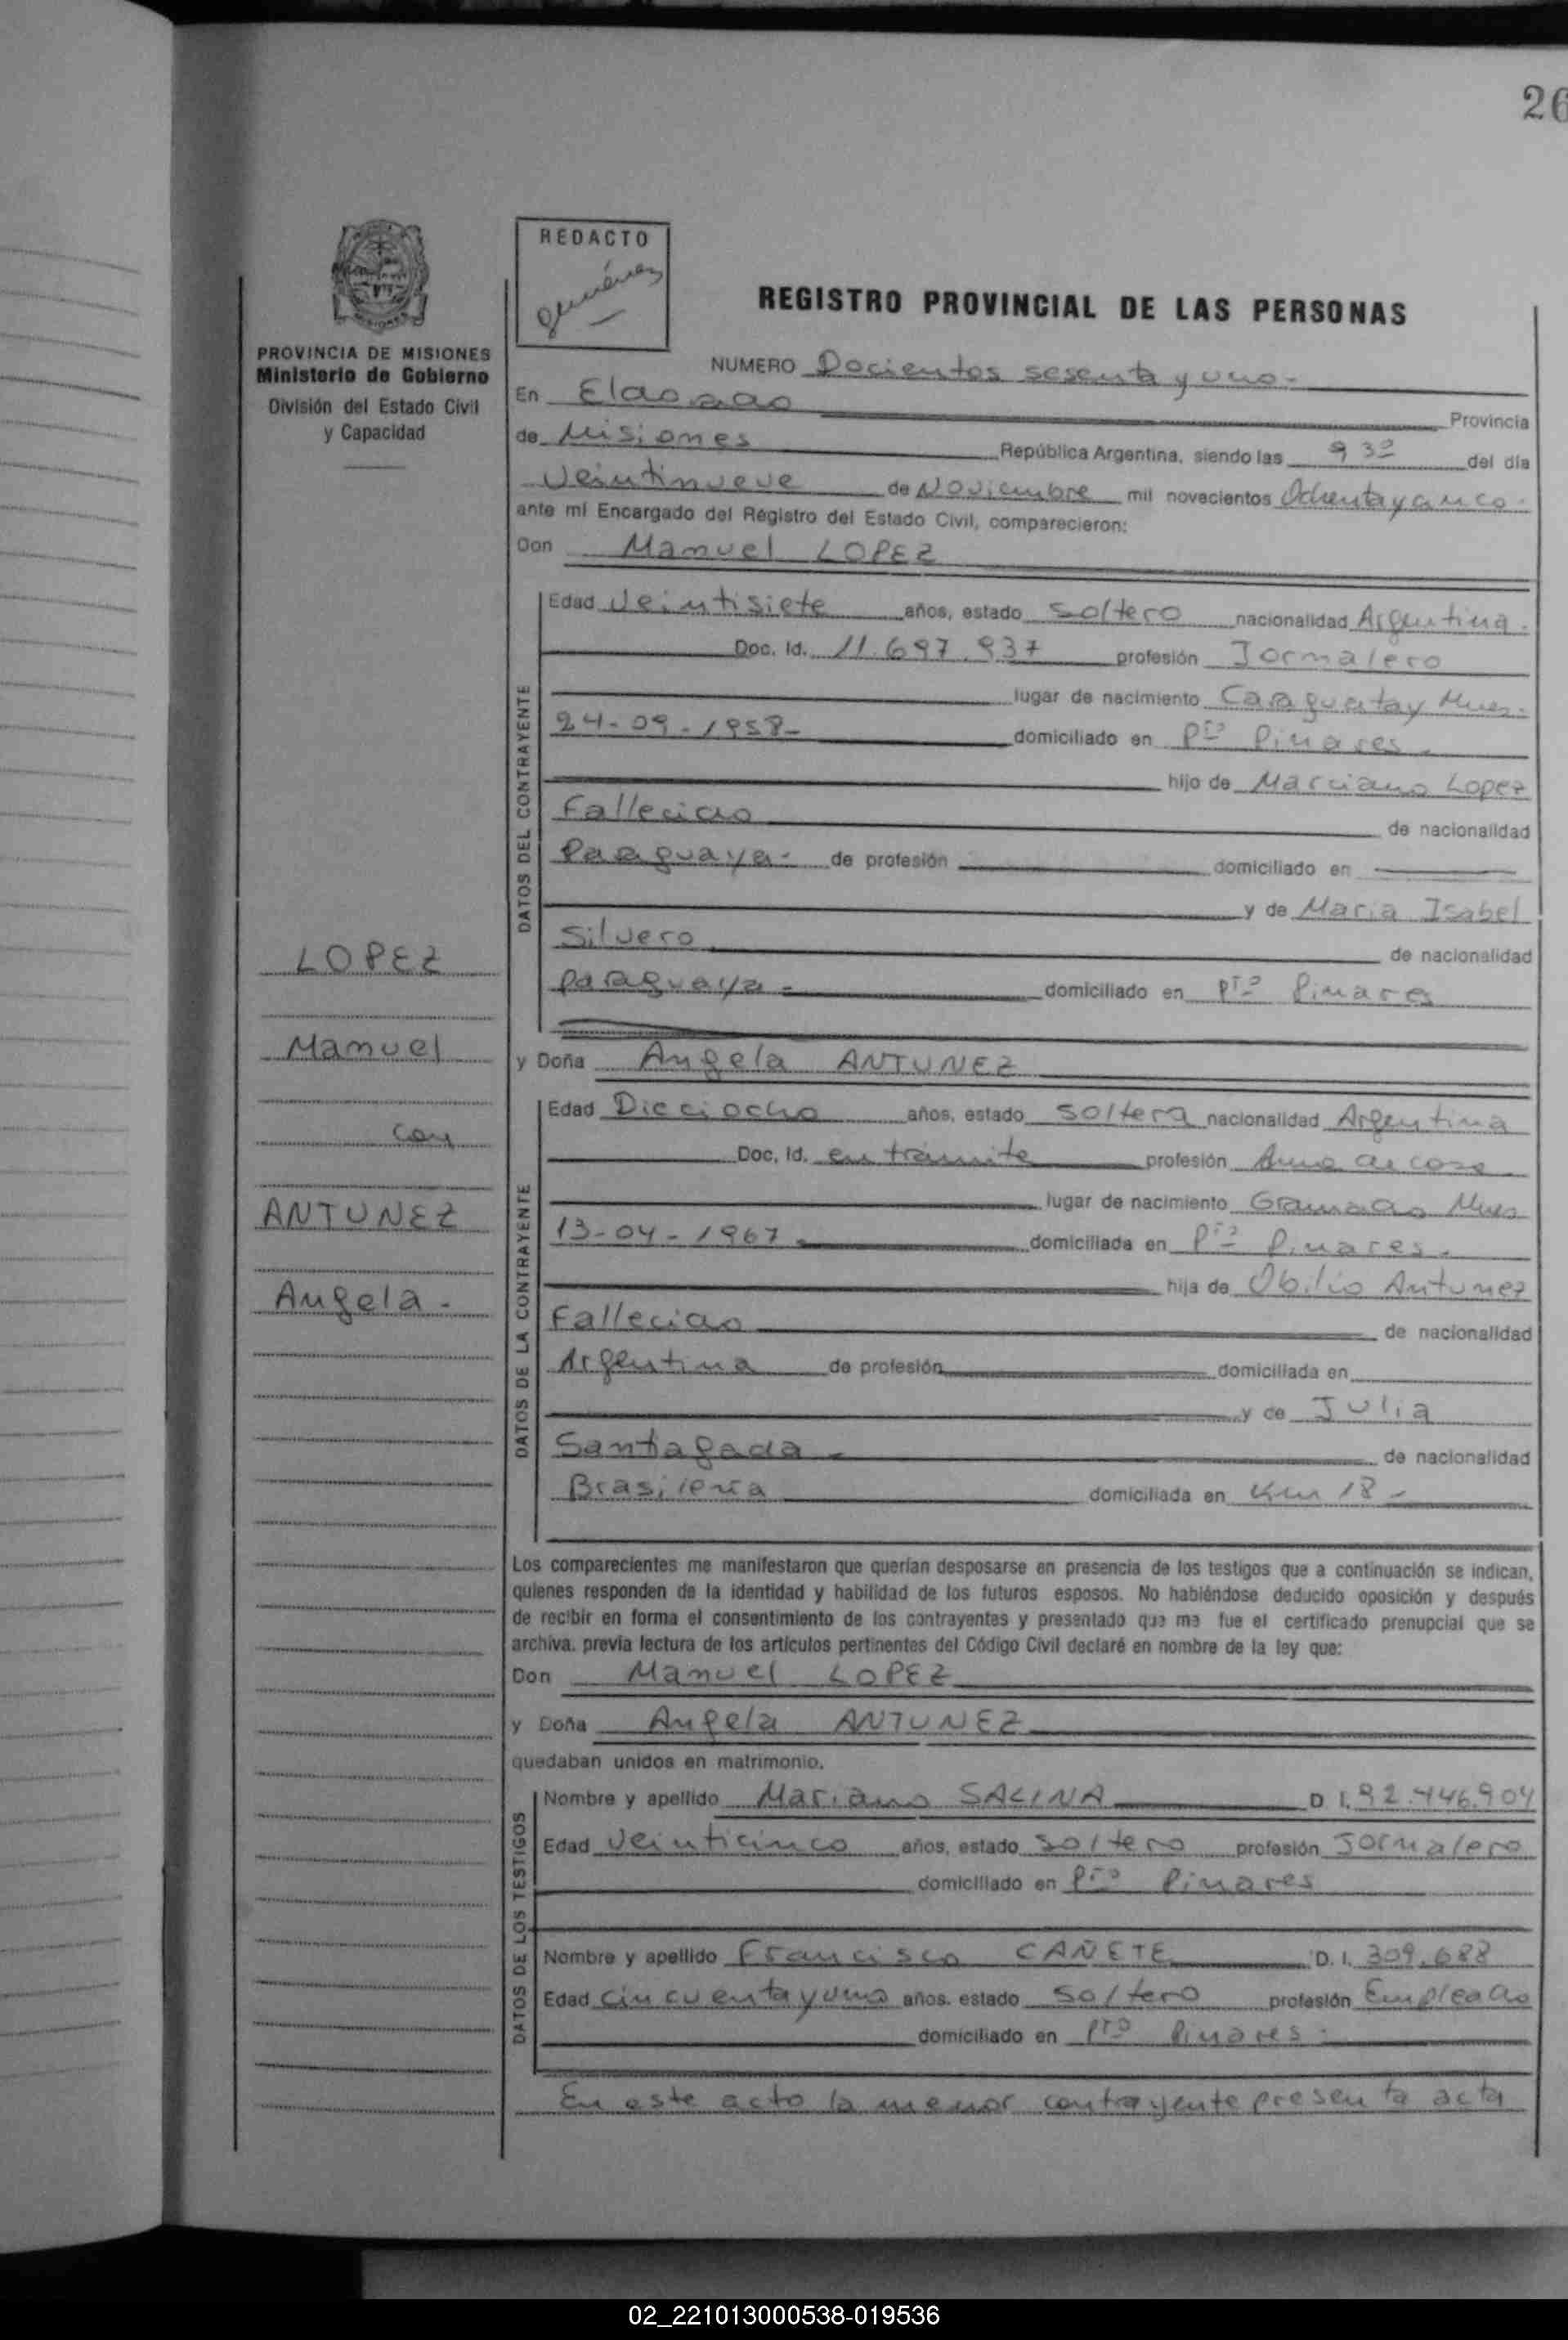 26
REDACTO
PROVINCIA DE MISIONES
Ministerio de Gobierno
División del Estado Civil
y Capacidad
REGISTRO PROVINCIAL DE LAS PERSONAS
NUMERO Docientos sesenta y uno.-
En Eldorado Provincia
de Misiones República Argentina, siendo las 9 30 del día
Veintinueve de Noviembre mil novecientos Ochenta y cinco.
ante mí Encargado del Registro del Estado Civil, comparecieron:
Don Manuel LOPEZ
DATOS DEL CONTRAYENTE
Edad Veintisiete años, estado Soltero nacionalidad Argentina.
Doc. Id. 11.697.937 profesión Jornalero
lugar de nacimiento Caraguatay Mnes.
24-09-1958- domiciliado en Pto Pinares.
hijo de Marciano Lopez
Fallecido de nacionalidad
Paraguaya- de profesión domiciliado en
y de Maria Isabel
Silvero de nacionalidad
paraguaya- domiciliado en Pto Pinares
LOPEZ
Manuel
con
ANTUNEZ
Angela-
y Doña Angela ANTUNEZ
DATOS DE LA CONTRAYENTE
Edad Dieciocho años, estado soltera nacionalidad Argentina
Doc. Id. en tramite profesión Ama de casa
lugar de nacimiento Gramado Mnes
13-04-1967- domiciliada en Pto Pinares.
hija de Obilio Antunez
Fallecido de nacionalidad
Argentina de profesión domiciliada en
y de Julia
Santagada- de nacionalidad
Brasileña domiciliada en Km 18-
Los comparecientes me manifestaron que querían desposarse en presencia de los testigos que a continuación se indican,
quienes responden de la identidad y habilidad de los futuros esposos. No habiéndose deducido oposición y después
de recibir en forma el consentimiento de los contrayentes y presentado que me fue el certificado prenupcial que se
archiva. previa lectura de los artículos pertinentes del Código Civil declaré en nombre de la ley que:
Don Manuel LOPEZ
y Doña Angela ANTUNEZ
quedaban unidos en matrimonio.
DATOS DE LOS TESTIGOS
Nombre y apellido Mariano SALINA D I. 92.446.904
Edad Veinticinco años, estado soltero profesión Jornalero
domiciliado en Pto Pinares
Nombre y apellido Francisco CAÑETE D. I. 309.688
Edad cincuenta y uno años. estado soltero profesión Empleado
domiciliado en Pto Pinares-
En este acto la menor contrayente presenta acta
02_221013000538-019536